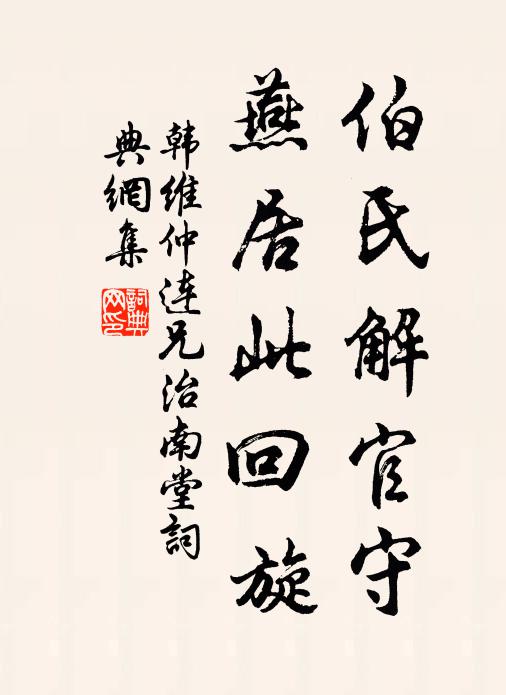 伯氏解官守
燕居此回旋
韩维仲连兄治南堂詞
典網集
詞典網印